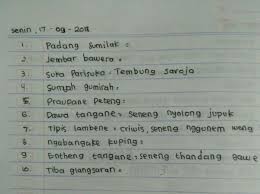 senin, 17 - 09 - 2018
1. Padang sumilak :
2. Jembar bawera :
3. Suka Parisuka : Tembung saroja
4. Sumyah gumirah :
5. Praupane Peteng :
6. Dawa tangane : seneng nyolong jupuk
7. Tipis lambene : criwis, seneng nggunem wong
8. ngabangake kuping :
9. Entheng tangane : seneng thandang gawe
10. Tiba glangsaran :